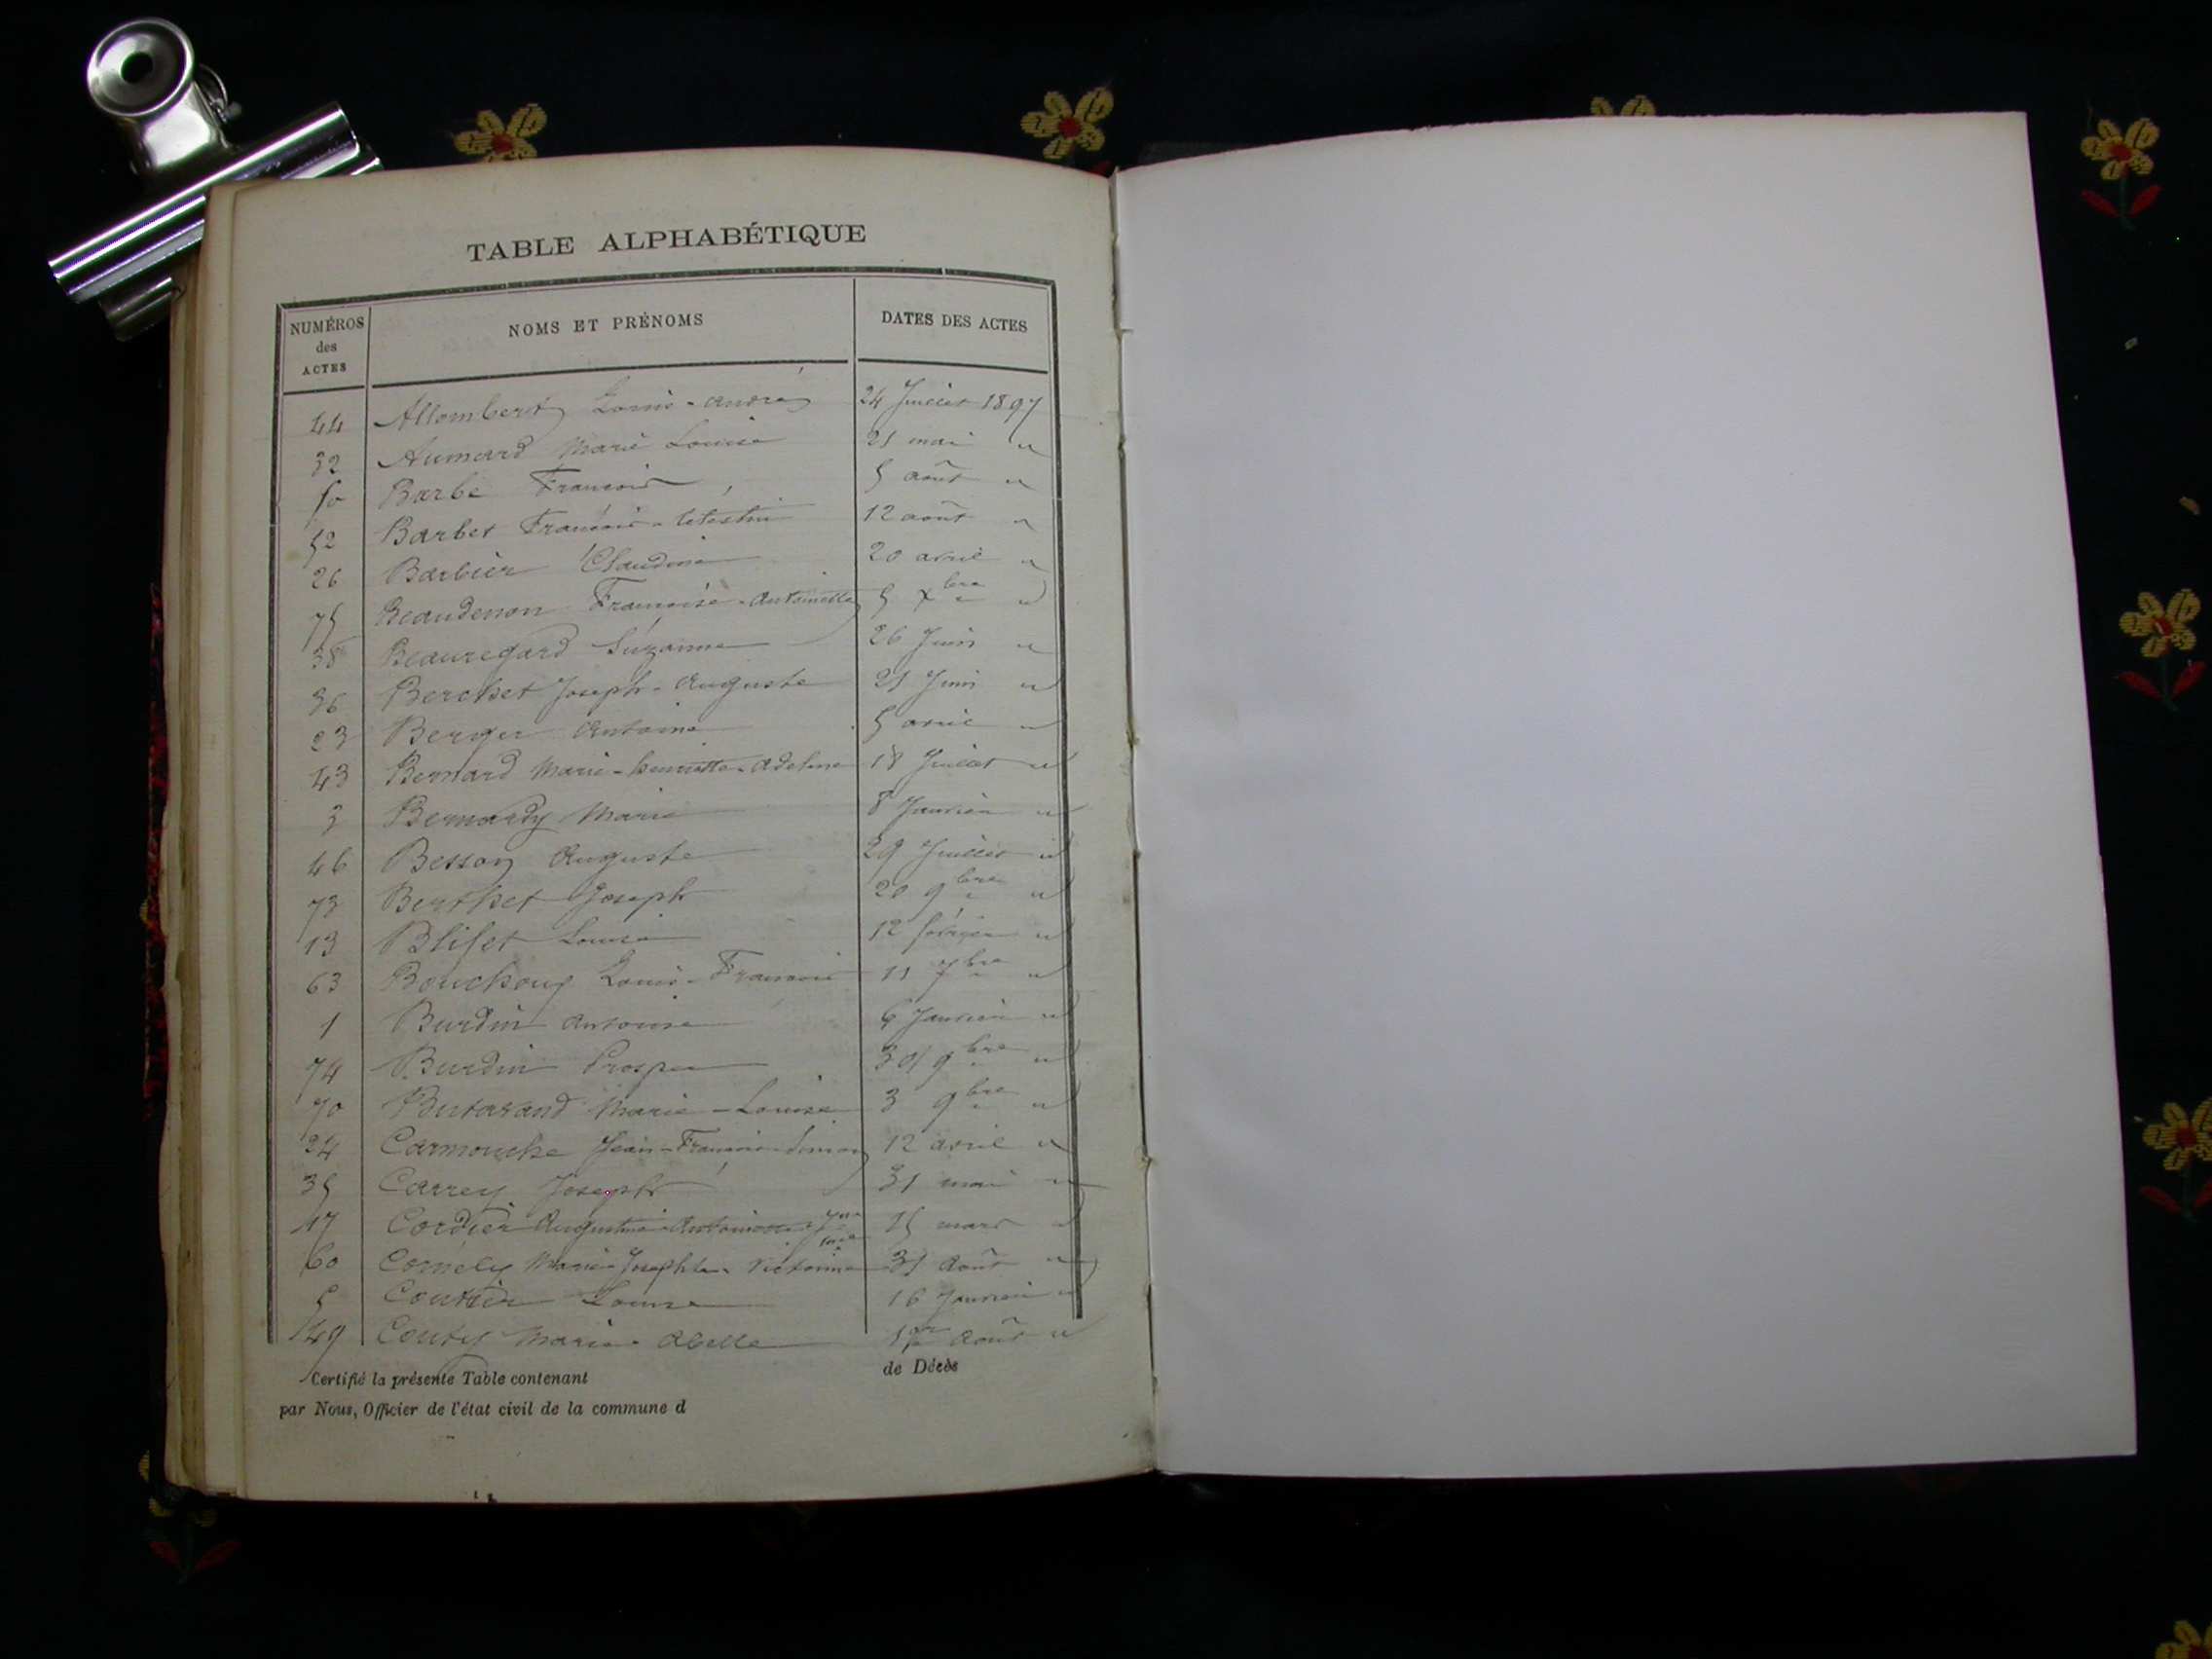 TABLE ALPHABÉTIQUE
NUMÉROS des ACTES NOMS ET PRÉNOMS DATES DES ACTES
44 Allombert Louis-André 24 Juillet 1897
32 Aumard Marie Louise 21 mai "
50 Barbe François 5 août "
52 Barbet François-Célestin 12 août "
26 Barbier Claudine 20 avril "
75 Beaudenon Françoise-Antoinette 5 Xbre "
38 Beauregard Suzanne 26 Juin "
36 Berchet Joseph-Auguste 21 Juin "
23 Berger Antoine 5 avril "
43 Bernard Marie-henriette-Adeline 18 Juillet "
3 Bernardy Marie 8 Janvier "
46 Besson Auguste 29 Juillet "
73 Berthet Joseph 20 9bre "
13 Blifet Louise 12 février "
63 Bouchoux Louis-François 11 7bre "
1 Burdin 6 Janvier "
74 Burdin Prosper 30 9bre "
70 Butavand Marie-Louise 3 9bre "
24 Carmouche Jean-François-Simon 12 avril "
35 Carrey Joseph 31 mai "
17 Cordier 15 mars "
60 Cornély Marie-Josephte-Victorine 31 Août "
5 Louise 16 Janvier "
49 Couty Marie-Abelle 1er Août "
Certifié la présente Table contenant de Décès
par Nous, Officier de l'état civil de la commune d